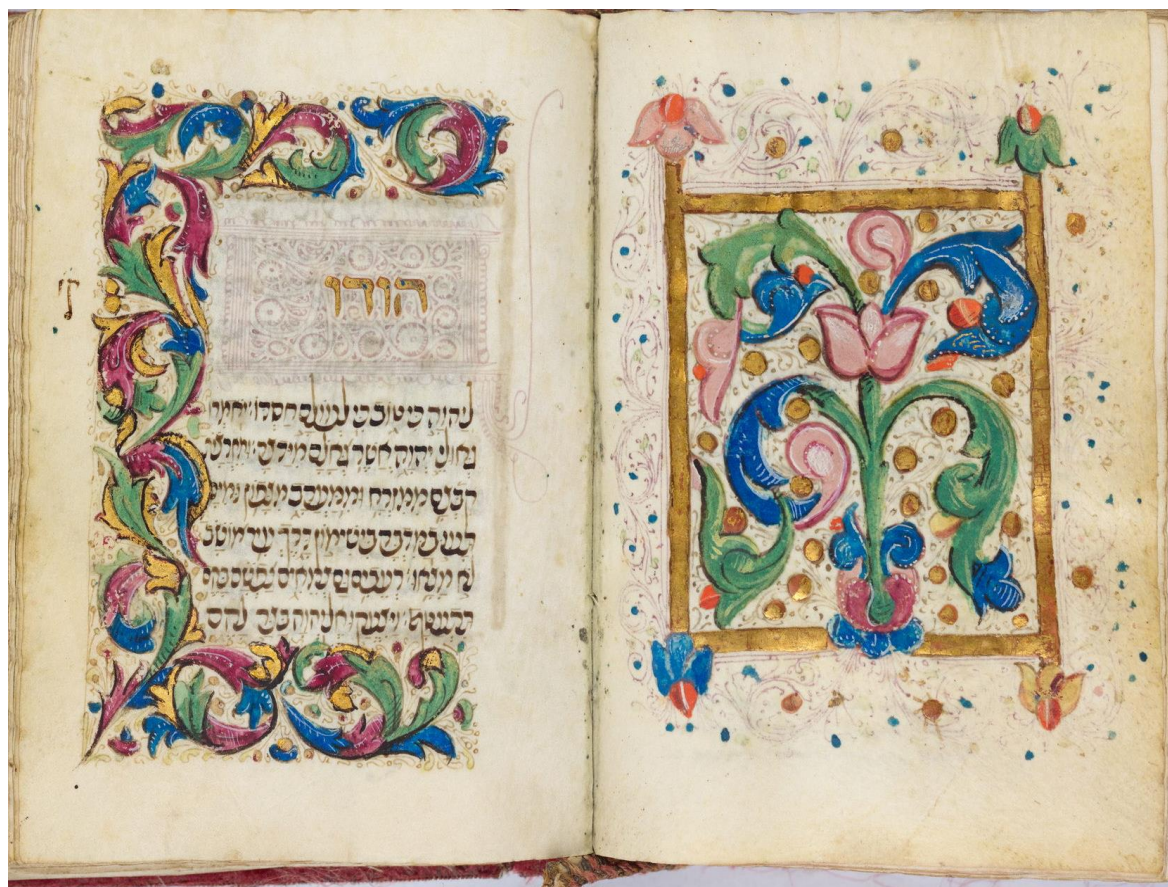 הודו
ליהוה כי טוב כי לעולם חסדו יאמרו
גאולי יהוה אשר גאלם מיד צר
קבצם ממזרח וממערב מצפון ומים
תעו במדבר בישימון דרך עיר מושב
לא מצאו רעבים גם צמאים נפשם בהם
תתעטף ויצעקו אל יהוה בצר להם